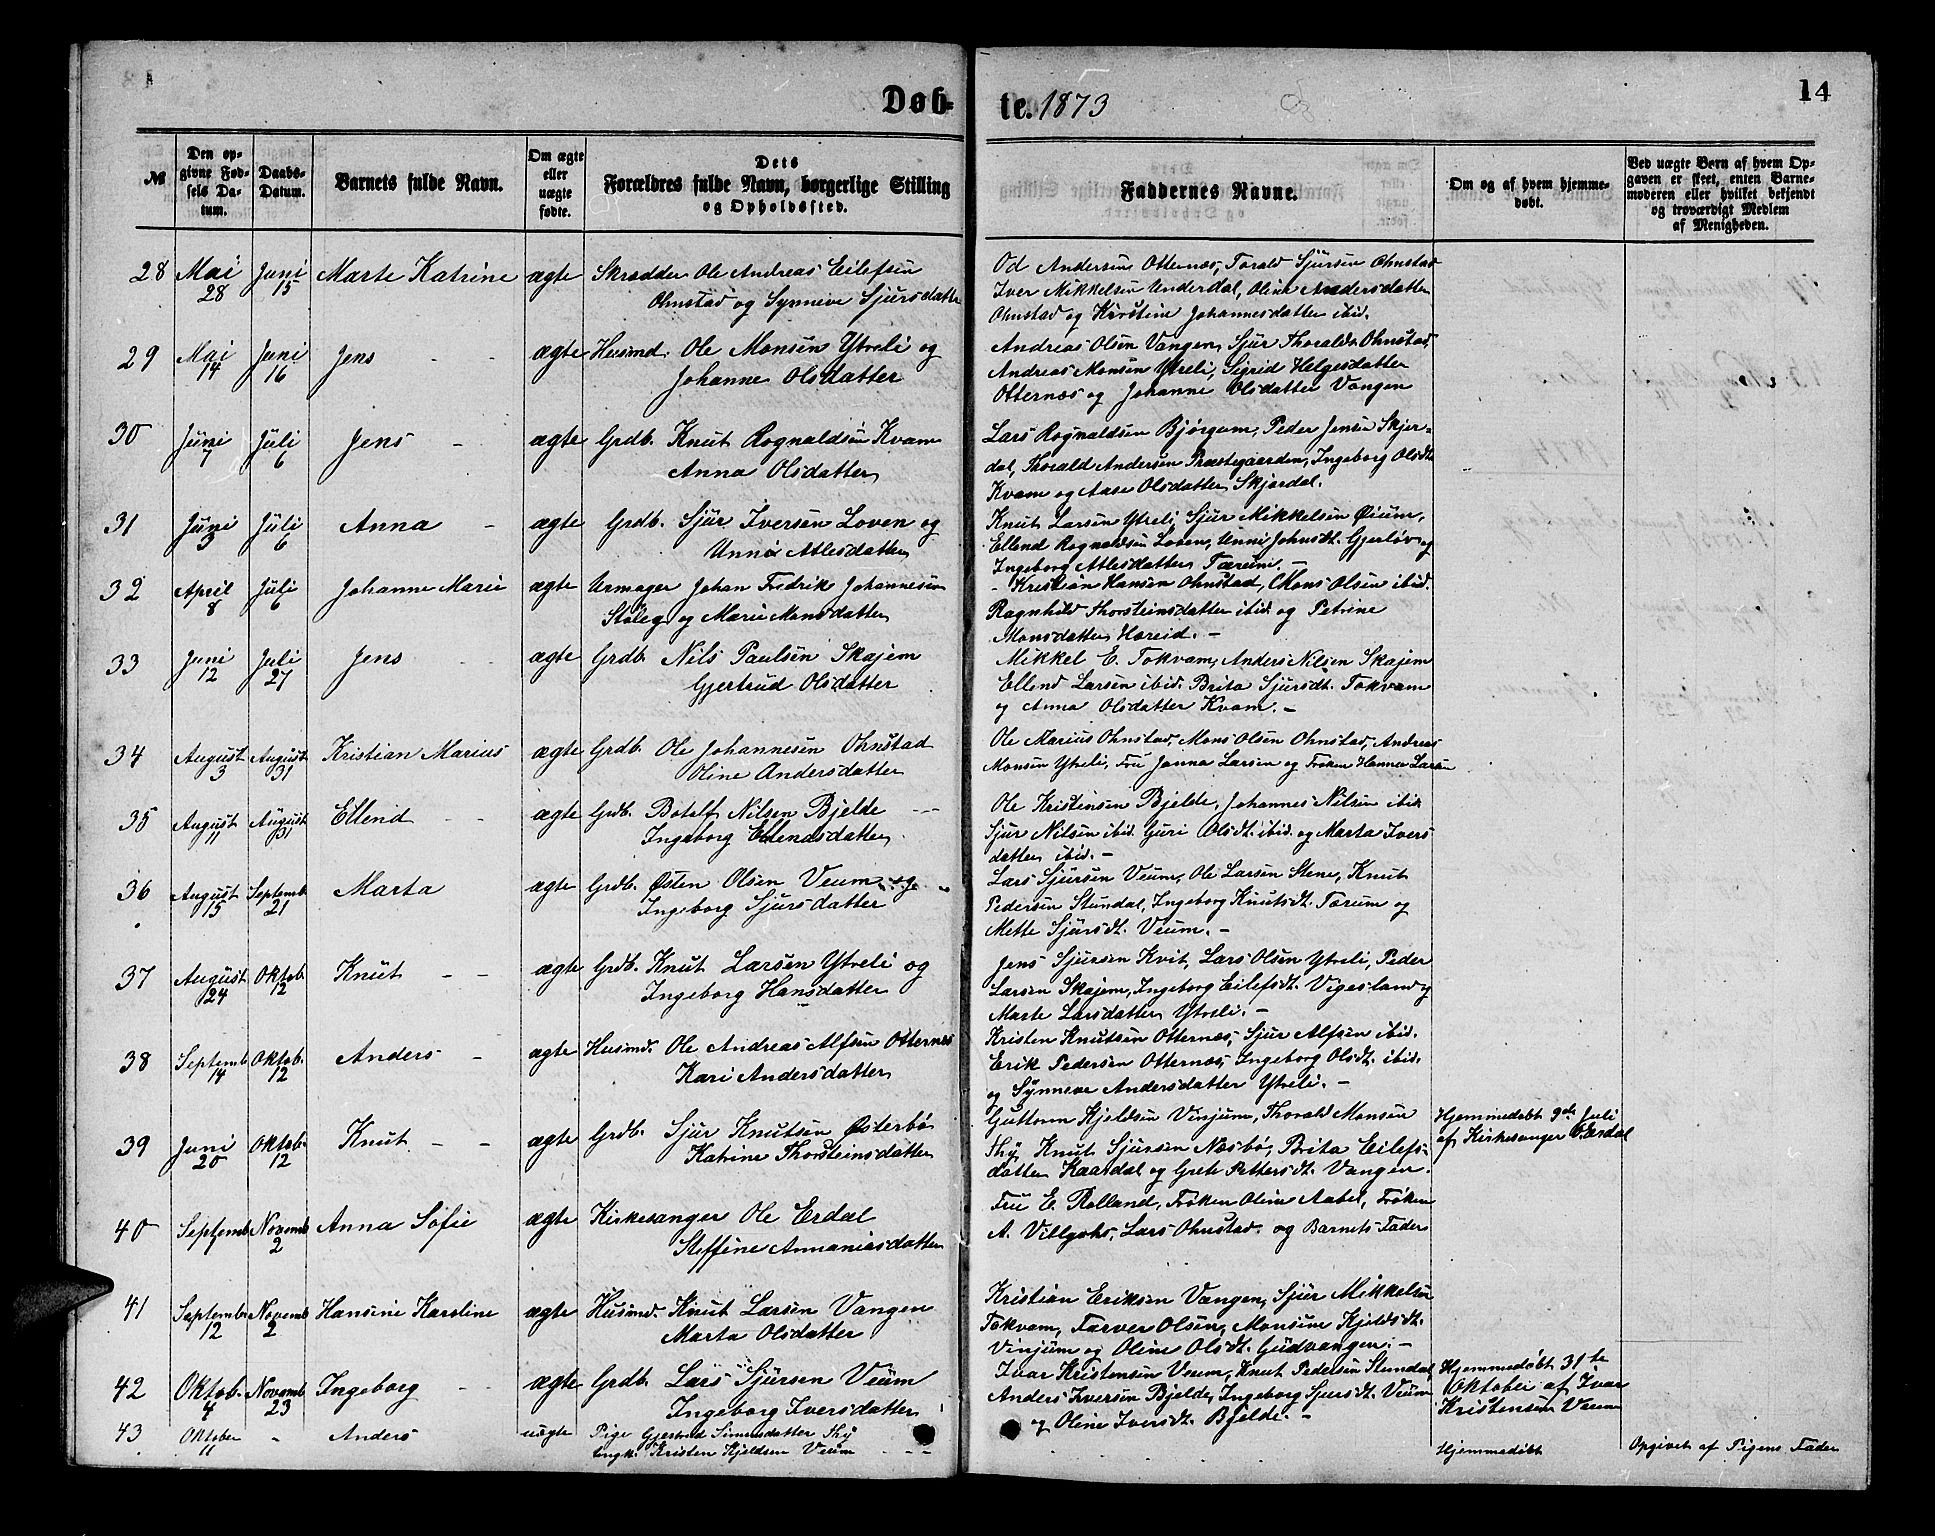 Døb-
te. 1873
14
№
Den op-
givne Fød-
sels Da-
tum.
Daabs-
Datum.
Barnets fulde Navn.
Om ægte
eller
uægte
fødte.
Dets
Forældres fulde Navn, borgerlige Stilling
og Opholdssted.
Faddernes Navne.
Om og af hvem hjemme-
døbt.
Ved uægte Børn af hvem Op-
gaven er skeet, enten Barne-
moderen eller hvilket bekjendt
og troværdigt Medlem
af Menigheden.
28 Mai 28 Juni 15 Marte Katrine ægte Skrædder Ole Andreas Eilefsen
Ohnstad og Synneve Sjursdatter
Od Andersen Otternæs, Torald Sjürsen Ohnstad
Iver Mikkelsen Underdal, Oline Andersdatter
Ohnstad og Kirstine Johannesdatter ibid.
29 Mai 14 Juni 16 Jens - - ægte Husmd. Ole Monsen Ytreli og
Johanne Olsdatter
Andreas Olsen Vangen, Sjur Thoralds. Ohnstad,
Andreas Monsen Ytreli, Sigrid Helgesdatter
Otternæs og Johanne Olsdatter Vangen
30 Juni 7 Juli 6 Jens - ægte Grdb. Knut Rognaldsen Kvam
Anna Olsdatter
Lars Rognaldsen Bjørgum, Peder Jensen Skjer-
dal, Thorald Andersen Præstegaarden, Ingeborg Olsdt.
Kvam og Aase Olsdatter Skjerdal.
31 Juni 3 Juli 6 Anna - ægte Grdb. Sjur Iversen Loven og
Unna Atlesdatter
Knut Larsen Ytreli, Sjur Mikkelsen Øium,
Ellend Rognaldsen Loven, Unni Johnsdt. Gjerløv og
Ingeborg Atlesdatter Færum. -
32 April 8 Juli 6 Johanne Marie ægte Urmager Johan Fredrik Johannesen
Stoleg og Marie Monsdatter
- Kristian Hansen Ohnstad, Mons Olsen ibid.
Ragnhild Thorsteinsdatter ibid. og Petrine
Monsdatter Hareid. -
33 Juni 12 Juli 27 Jens - - ægte Grdb. Nils Paulsen Skajem
Gjertrud Olsdatter
Mikkel E. Tokvam, Anders Nilsen Skajem
Ellend Larsen ibid. Brita Sjursdt. Tokvam
og Anna Olsdatter Kvam. -
34 August 3 August 31 Kristian Marius ægte Grdb. Ole Johannesen Ohnstad
Oline Andersdatter
Ole Marius Ohnstad, Mons Olsen Ohnstad, Andreas
Monsen Ytreli, Fru Janna Larsen og Frøken Hanna Larsen
35 August 11 August 31 Ellend - - ægte Grdb. Botolf Nilsen Bjelde - -
Ingeborg Ellendsdatter
Ole Kristensen Bjelde, Johannes Nilsen ibid.
Sjur Nilsen ibid. Guri Olsdt. ibid. og Marta Ivers
datter ibid. -
36 August 15 Septemb. 21 Marta ægte Grdb. Østen Olsen Veum og
Ingeborg Sjursdatter
Lars Sjursen Veum, Ole Larsen Stene, Knut
Pedersen Stundal, Ingeborg Knutsdt. Færum og
Mette Sjursdt. Veum. -
37 August 24 Oktob. 12 Knut - - ægte Grdb. Knut Larsen Ytreli og
Ingeborg Hansdatter
Jens Sjursen Kvit, Lars Olsen Ytreli, Peder
Larsen Skajem, Ingeborg Eilefsdt. Vigesland og
Marte Larsdatter Ytreli. -
38 Septemb. 14 Oktob. 12 Anders - ægte Husmd. Ole Andreas Alfsen Otternes
Kari Andersdatter
Kristen Knutsen Otternæs, Sjur Alfsen ibid.
Erik Pedersen Otternæs, Ingeborg Olsdt. ibid.
og Synneve Andersdatter Ytreli. -
39 Juni 20 Oktob. 12 Knut - - ægte Grdb. Sjur Knutsen Østerbø
Katrine Thorsteinsdatter
Guttorm Kjeldsen Vinjum, Thorald Monsen
Thy, Knut Sjursen Næsbø, Brita Eilefs-
datter Kaardal og Grete Pettersdt. Vangen.
Hjemmedøbt 9de Juli
af Kirkesanger O. Erdal
40 Septemb. Novemb. 2 Anna Sofie ægte Kirkesanger Ole Erdal
Steffine Annaniasdatter
Fru E. Rolland, Frøken Oline Aabel, Frøken
A. Villgohs, Lars Ohnstad. og Barnets Fader
41 Septemb. 12 Novemb. 2 Hansine Karoline ægte Husmd. Knut Larsen Vangen
Marta Olsdatter
Kristian Eriksen Vangen, Sjur Mikkelsen
Tokvam, Farver Olsen, Monsine Kjeldsdt.
Vinjum og Oline Olsdt. Gudvangen. -
42 Oktob. 4 Novemb. 23 Ingeborg - - ægte Grdb. Lars Sjursen Veum
Ingeborg Iversdatter
Ivar Kristensen Veum, Knut Pedersen Stundal,
Anders Iversen Bjelde, Ingeborg Sjursdt. Veum
og Oline Iversdt. Bjelde. -
Hjemmedøbt 31te
Oktober af Ivar
Kristensen Veum
43 Oktober 11 - Anders uægte Pige Gjertrud Simensdatter Thy
Ungk. Kristen Kjeldsen Veum - - -
Hjemmedøbt
Opgivet af Pigens Fader